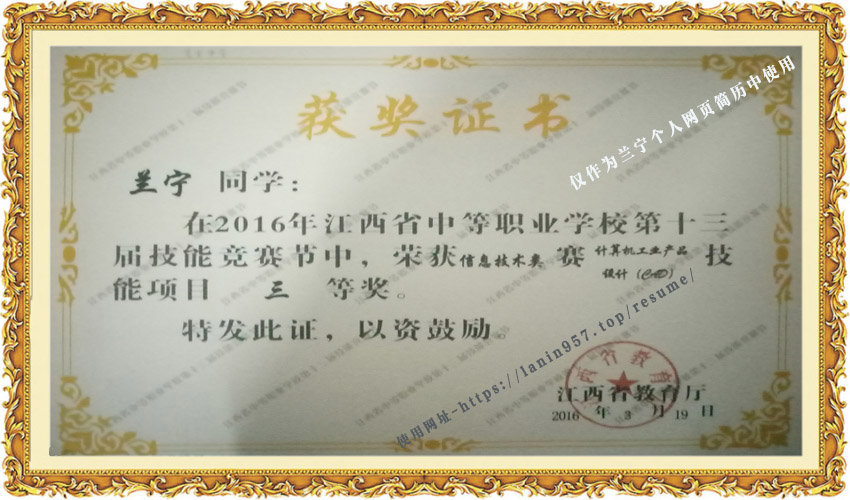 获奖证书
兰宁 同学：
在2016年江西省中等职业学校第十三
届技能竞赛节中，荣获信息技术类赛计算机工业产品设计（CAD）技
能项目 三 等奖。
特发此证，以资鼓励。
江西省教育厅
2016 年 3 月 19 日
江西省教育
仅作为兰宁个人网页简历中使用
使用网址-https://lanin957.top/resume/